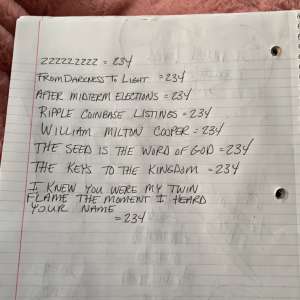 ZZZZZZZZZ = 234
FROM DARKNESS TO LIGHT = 234
AFTER MIDTERM ELECTIONS = 234
RIPPLE COINBASE LISTINGS = 234
WILLIAM MILTON COOPER = 234
THE SEED IS THE WORD OF GOD = 234
THE KEYS TO THE KINGDOM = 234
I KNEW YOU WERE MY TWIN
FLAME THE MOMENT I HEARD
YOUR NAME
= 234